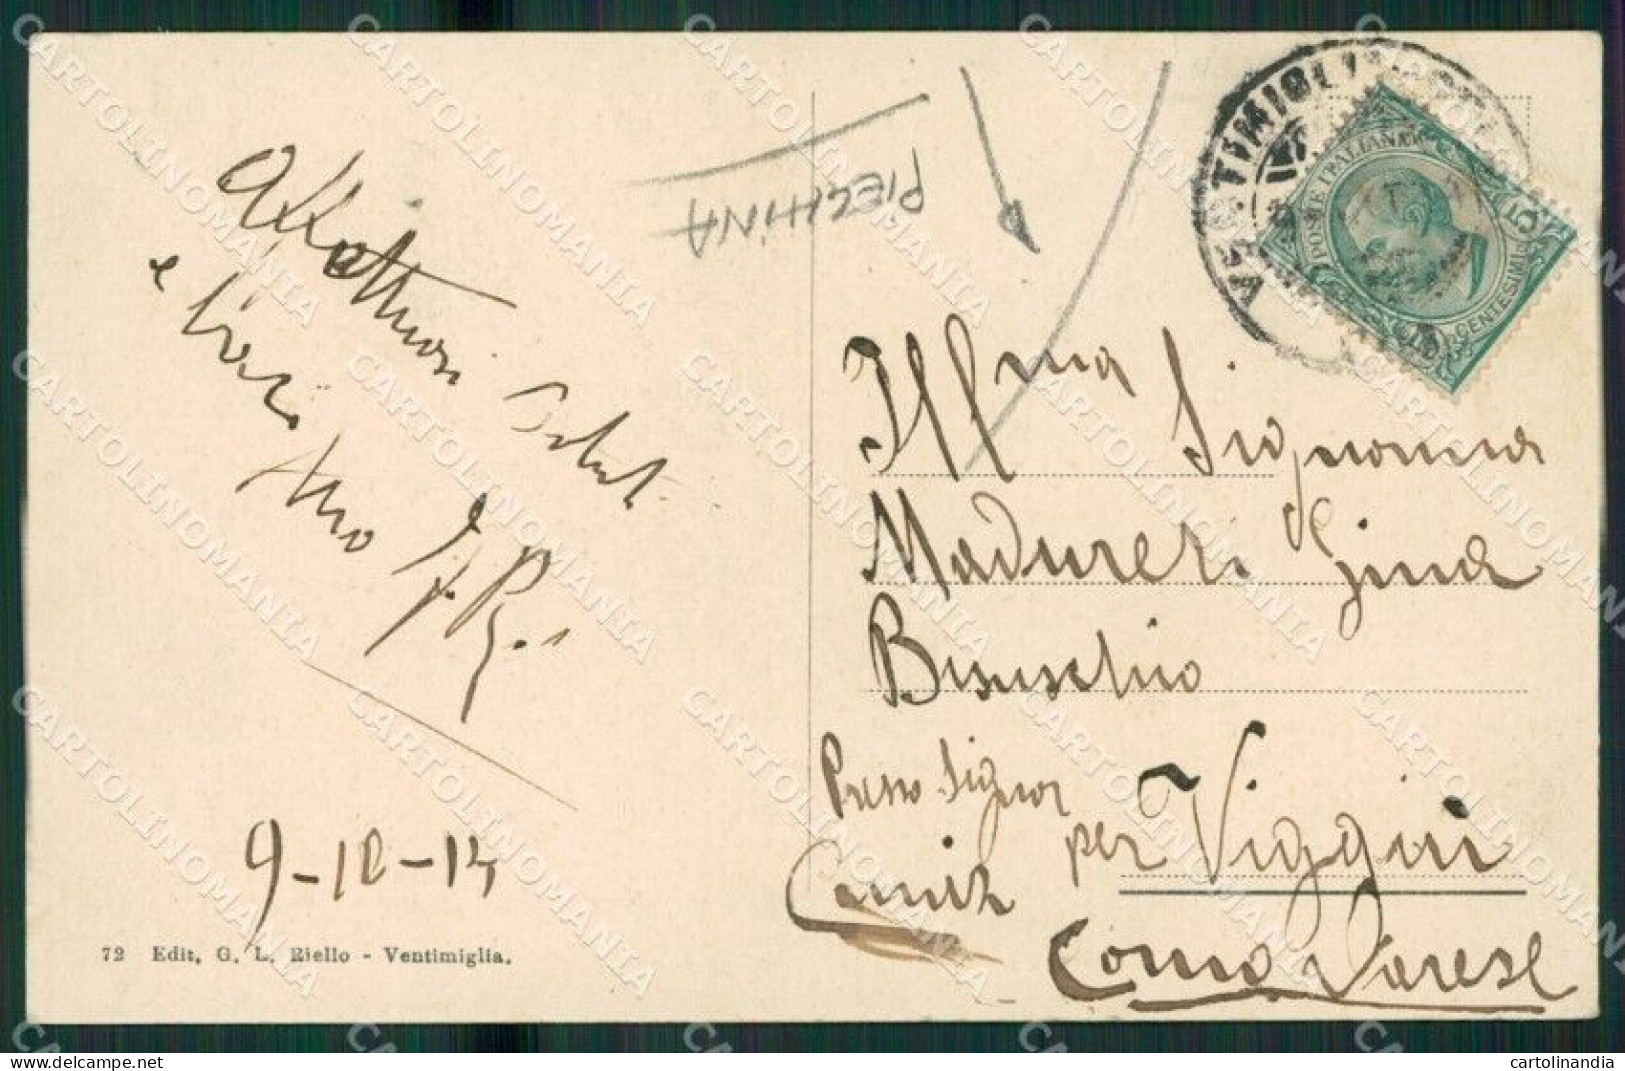 Affettuosi Saluti
e
tuo
9-10-14
72 Edit. G. L. Riello - Ventimiglia.
PIEGHINA
VENTIMIGLIA
POSTE ITALIANE
CENTESIMI 5
Ill ma Signorina
Madureri Gina
Bisuschio
Presso Signor
per Viggiù
Como Varese
CARTOLINOMANIA
cartolinandia
delcampe.net